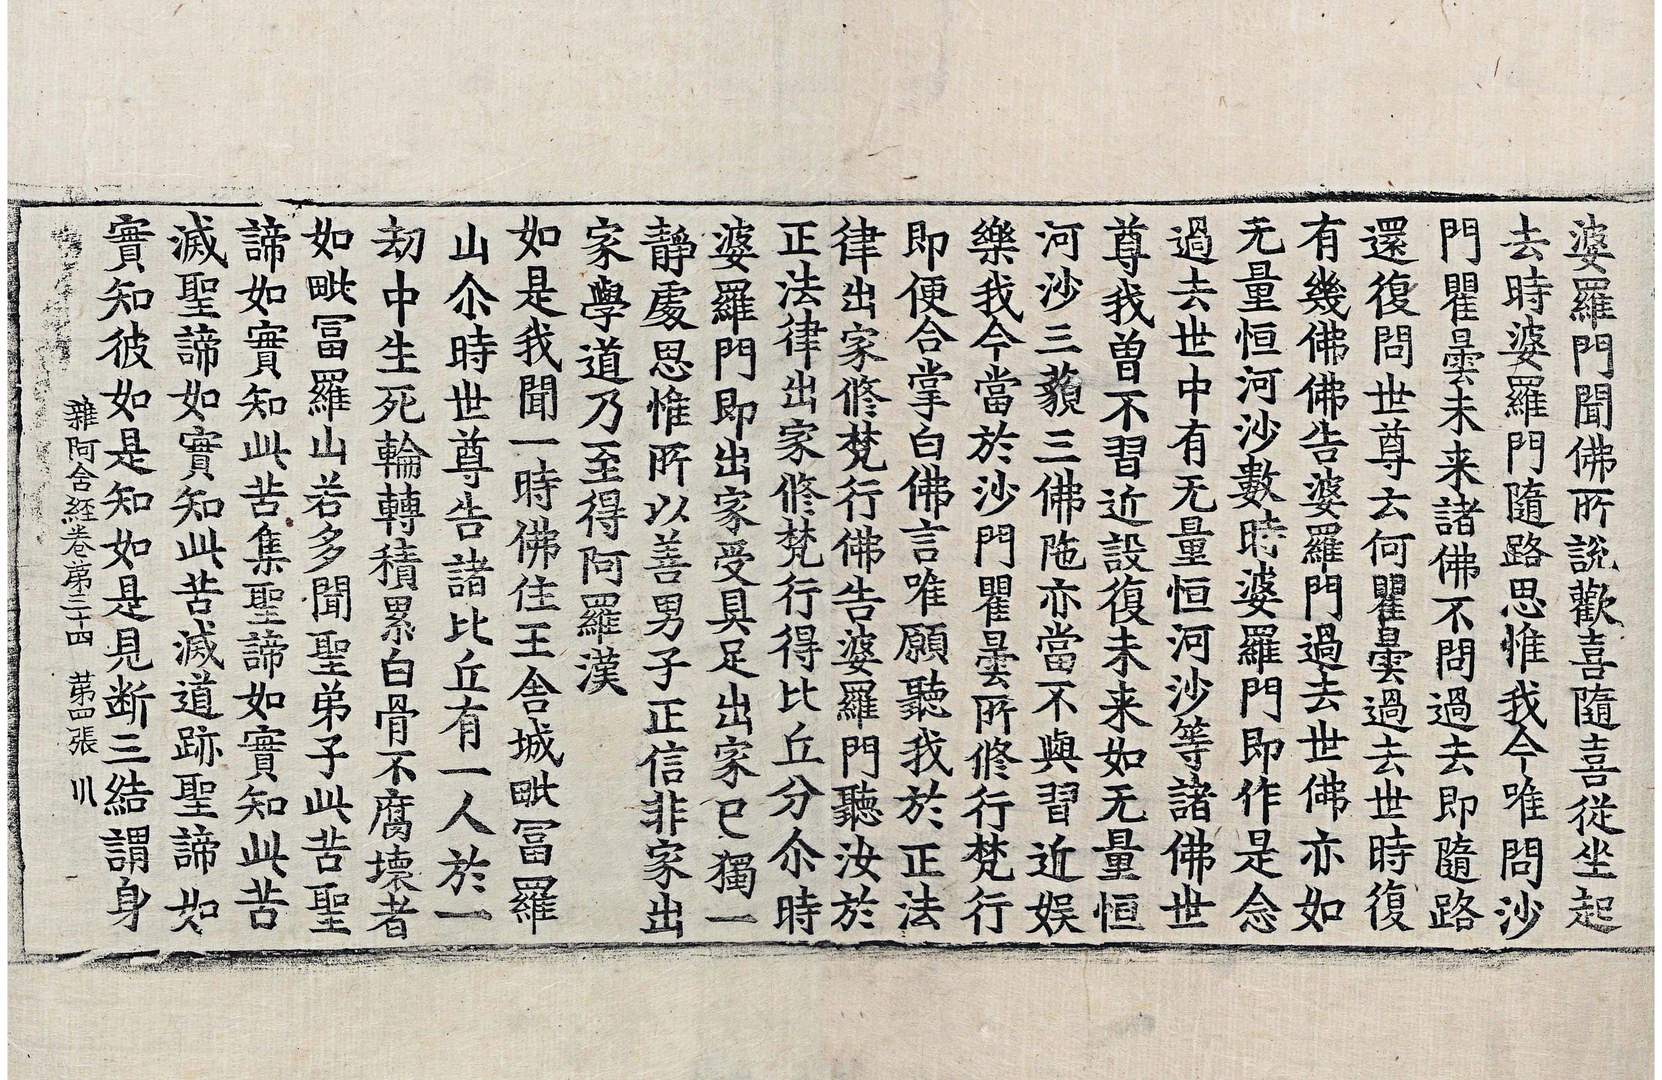 婆羅門聞佛所說歡喜隨喜從坐起
去時婆羅門隨路思惟我今唯問沙
門瞿曇未来諸佛不問過去即隨路
還復問世尊云何瞿曇過去世時復
有幾佛佛告婆羅門過去世佛亦如
无量恒河沙數時婆羅門即作是念
過去世中有无量恒河沙等諸佛世
尊我曽不習近設復未来如无量恒
河沙三藐三佛陁亦當不與習近娯
樂我今當於沙門瞿曇所修行梵行
即便合掌白佛言唯願聽我於正法
律出家修梵行佛告婆羅門聽汝於
正法律出家修梵行得比丘分尒時
婆羅門即出家受具足出家已獨一
靜處思惟所以善男子正信非家出
家學道乃至得阿羅漢
如是我聞一時佛住王舍城毗冨羅
山尒時世尊告諸比丘有一人於一
劫中生死輪轉積累白骨不腐壞者
如毗冨羅山若多聞聖弟子此苦聖
諦如實知此苦集聖諦如實知此苦
滅聖諦如實知此苦滅道跡聖諦如
實知彼如是知如是見断三結謂身
雜阿含經卷第三十四 第四張 川